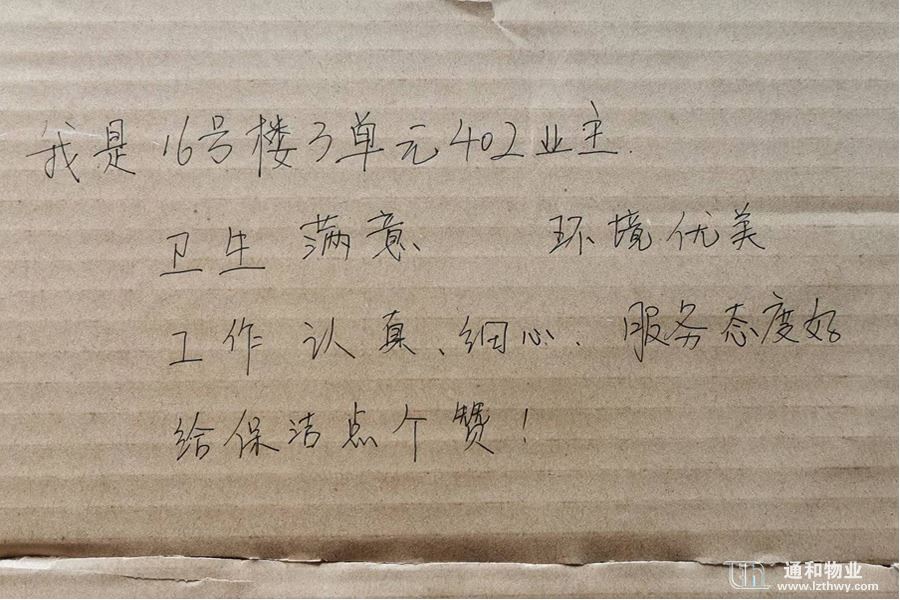 我是16号楼3单元402业主.
卫生 满意、 环境优美
工作 认真、细心. 服务态度好
给保洁点个赞!
通和物业
www.lzthwy.com